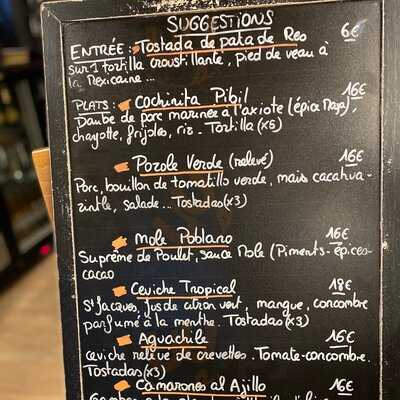 SUGGESTIONS
ENTRÉE : Tostada de pata de Res 6€
sur 1 tortilla croustillante, pied de veau à
la Mexicaine...
PLATS : Cochinita Pibil 16€
Daube de porc marinée à l'axiote (épice Maya),
chayotte, frijoles, riz - Tortilla (x5)
Pozole Verde (relevé) 16€
Porc, bouillon de tomatillo verde, maïs cacahua-
zintle, salade... Tostadas (x3)
Mole Poblano 16€
Suprême de Poulet, sauce Mole (Piments - épices -
cacao
Ceviche Tropical 18€
St Jacques, jus de citron vert, mangue, concombre
parfumé à la menthe. Tostadas (x3)
Aguachile 16€
ceviche relevé de crevettes. Tomate-concombre.
Tostadas (x3)
Camarones al Ajillo 16€